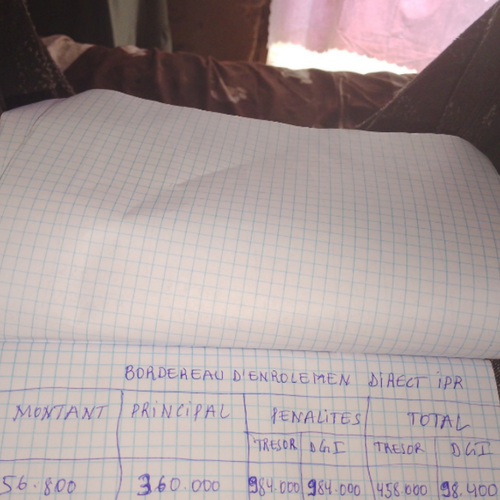 BORDEREAU D'ENROLEMEN DIRECT iPR
MONTANT PRINCIPAL PENALITES TOTAL
TRESOR DGI TRESOR DGI
56.800 360.000 984.000 984.000 458.000 98.400